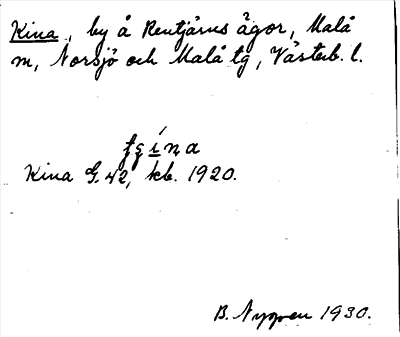 Kina, by å Rentjärns ägor, Malå
m, Norsjö och Malå tg, Västerb. l.
Kina G. 42, kb. 1920.
B. Nyman 1930.